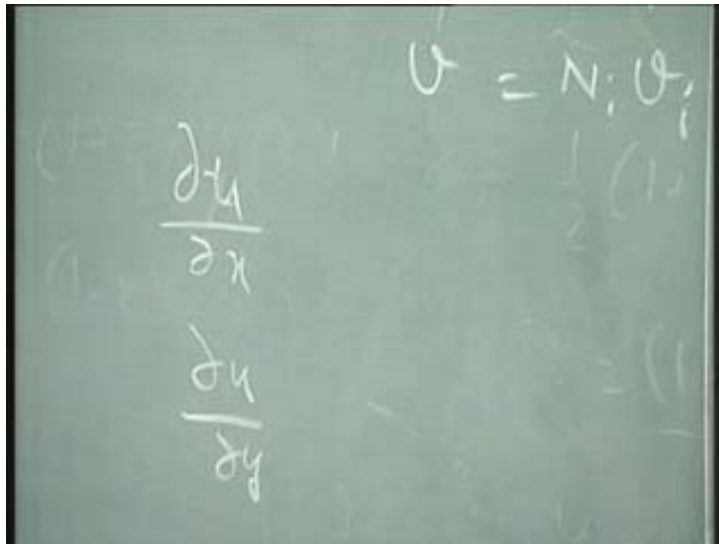 v = Nᵢ vᵢ
∂u
∂x
∂u
∂y